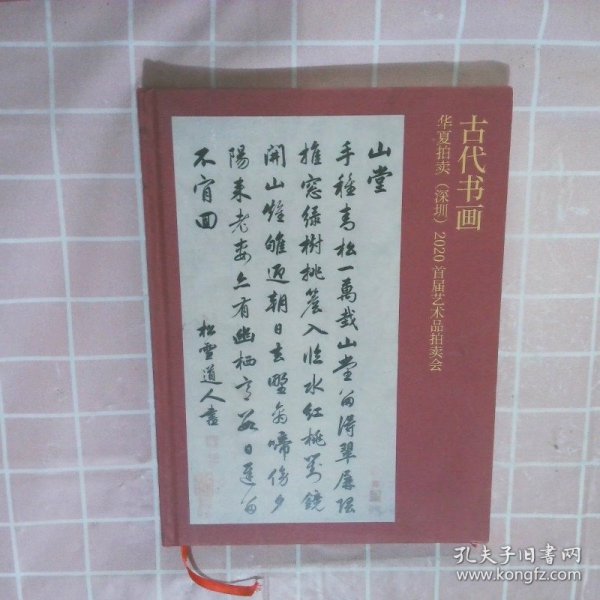 古代书画
华夏拍卖（深圳）2020首届艺术品拍卖会
山堂
手種青松一萬栽山堂留得翠屏隈
推窓緑樹排簷入臨水紅桃對鏡
開山雉雊迎朝日去野禽啼傍夕
陽来老妻亦有幽栖意數日遲留
不肯回
松雪道人書
孔夫子旧书网
www.kongfz.com